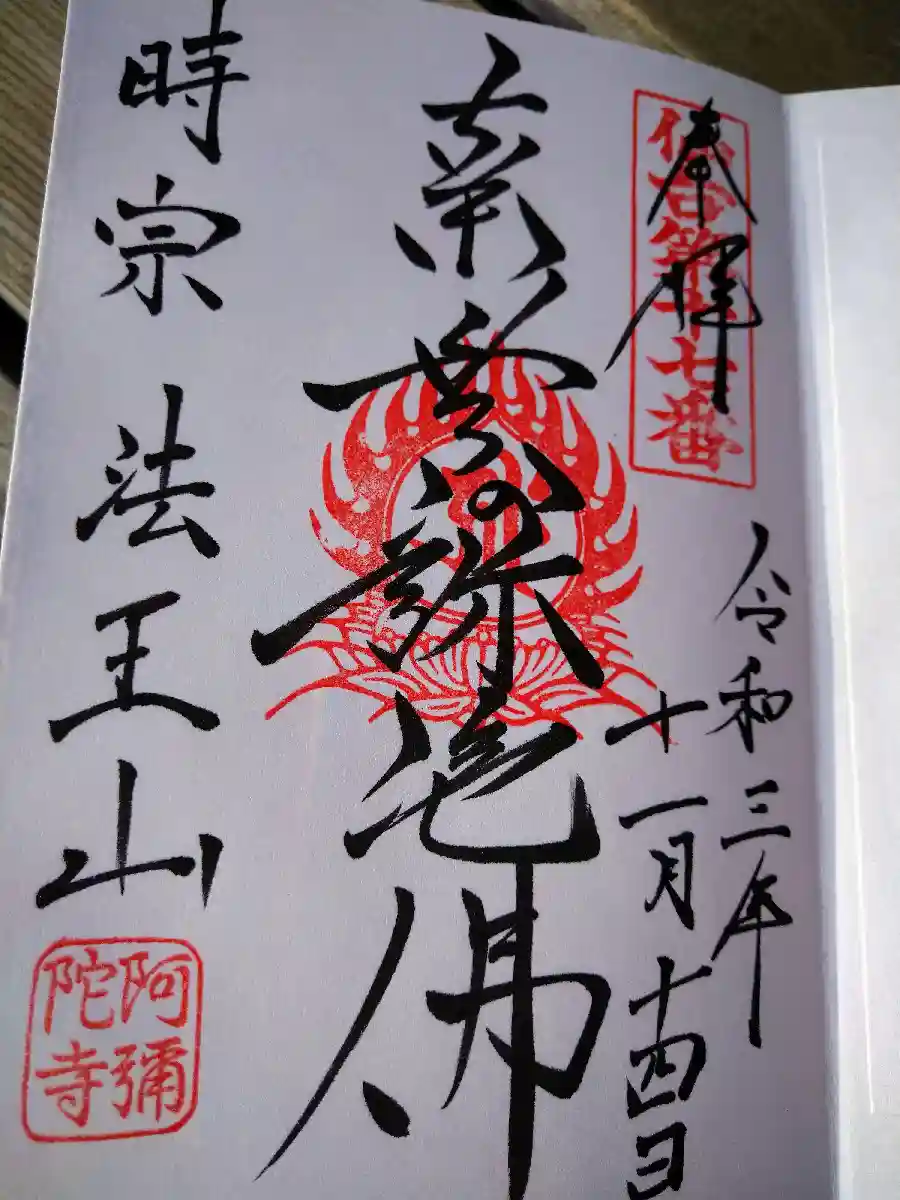 奉拝
十七番
令和三年
十一月十四日
南無阿弥陀佛
時宗 法王山
阿彌
陀寺